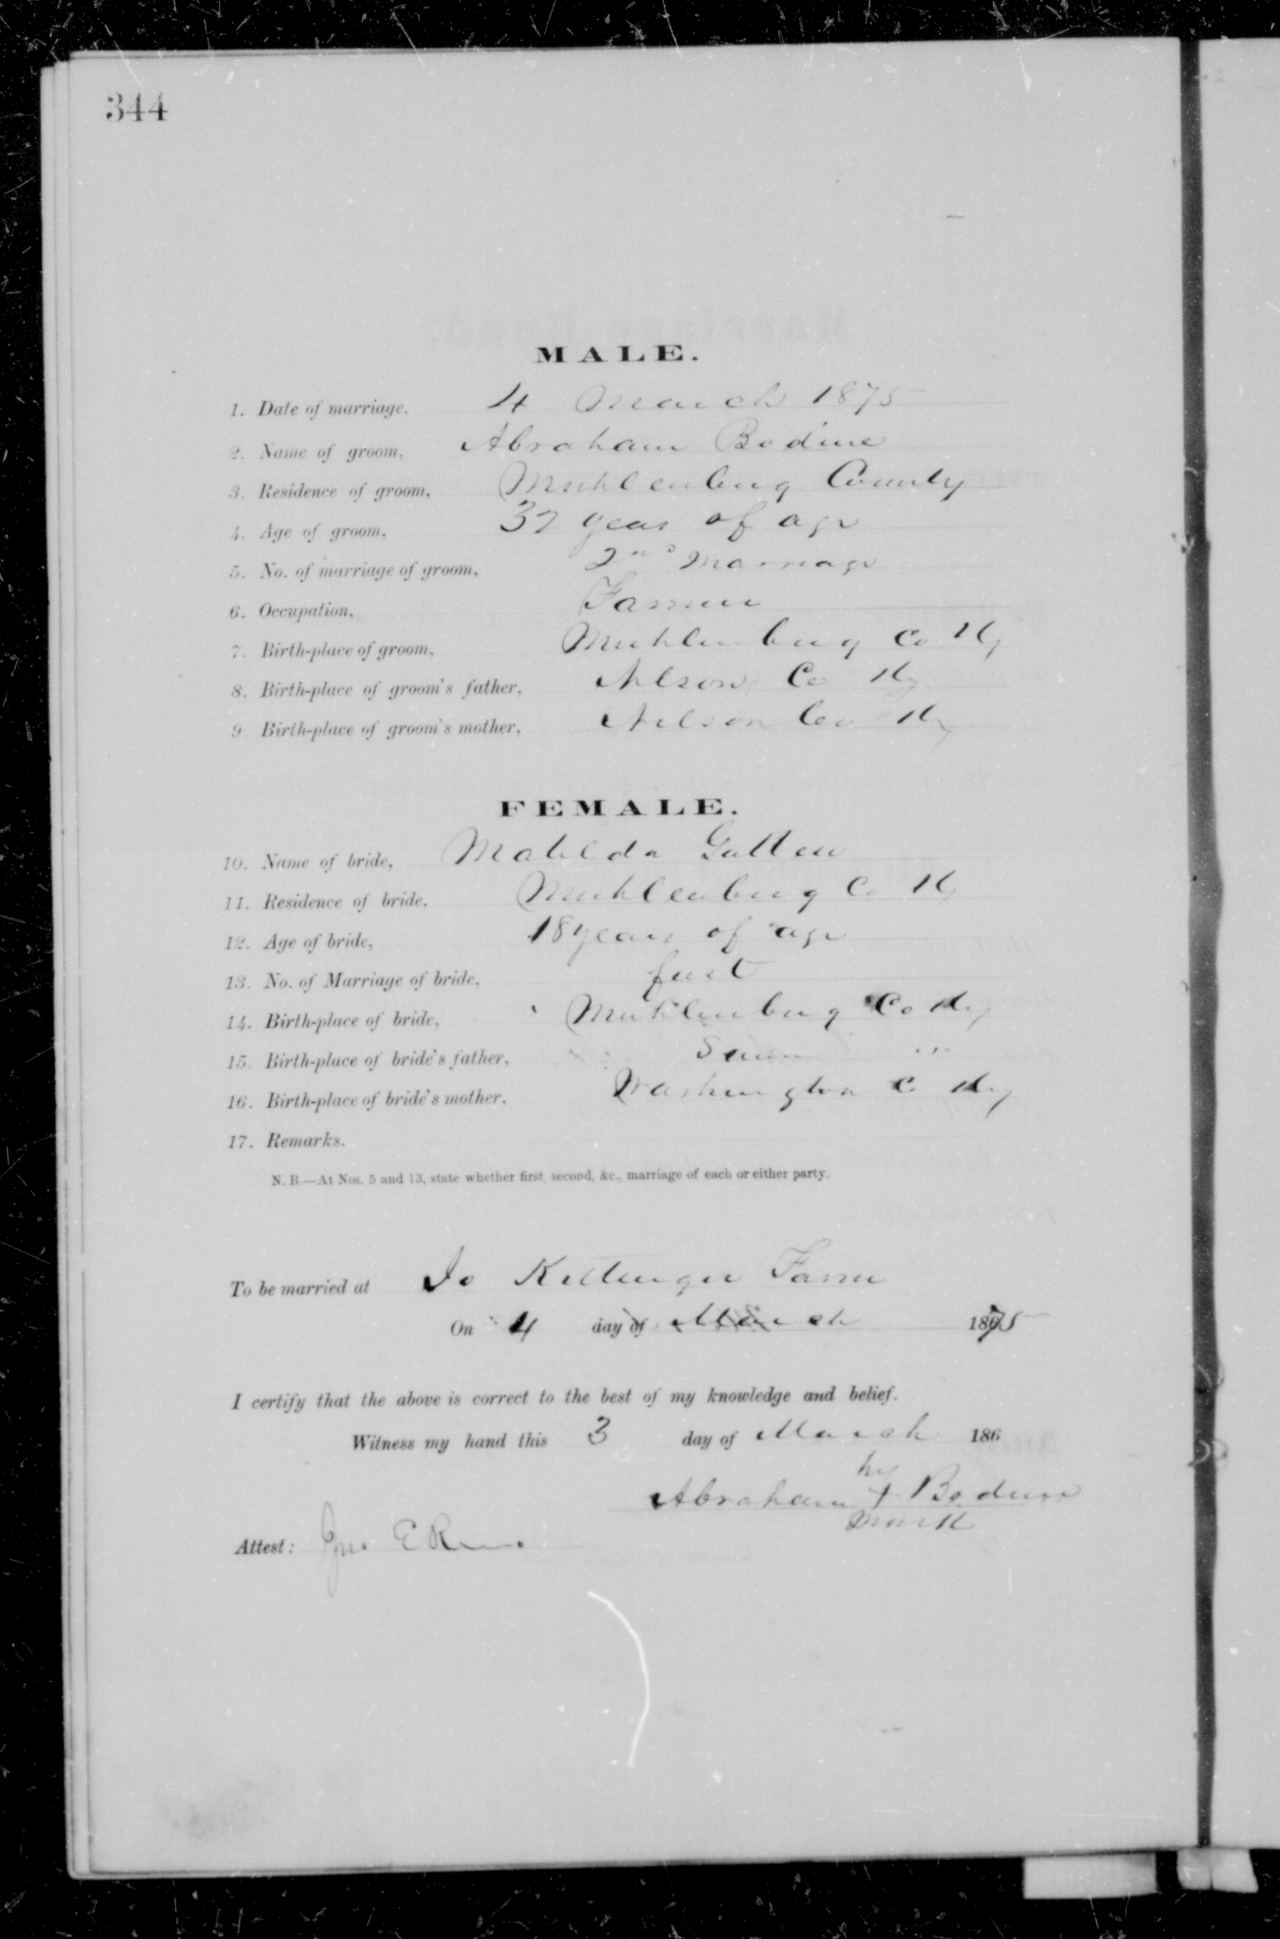 344
MALE.
1. Date of marriage, 4 March 1875
2. Name of groom, Abraham Bodine
3. Residence of groom, Muhlenburg County
4. Age of groom, 37 years of age
5. No. of marriage of groom, 2nd Marriage
6. Occupation, Farmer
7. Birth-place of groom, Muhlenburg Co Ky
8. Birth-place of groom's father, Nelson Co Ky
9 Birth-place of groom's mother, Nelson Co Ky
FEMALE.
10. Name of bride, Matilda Gatten
11. Residence of bride, Muhlenburg Co Ky
12. Age of bride, 18 years of age
13. No. of Marriage of bride, first
14. Birth-place of bride, Muhlenburg Co Ky
15. Birth-place of bride's father, Same
16. Birth-place of bride's mother, Washington C Ky
17. Remarks.
N. B.—At Nos. 5 and 13, state whether first, second, &c., marriage of each or either party.
To be married at Jo Kittinger Farm
On 4 day of March 1875
I certify that the above is correct to the best of my knowledge and belief.
Witness my hand this 3 day of March 186
his
Abraham + Bodine
mark
Attest: Jno. E